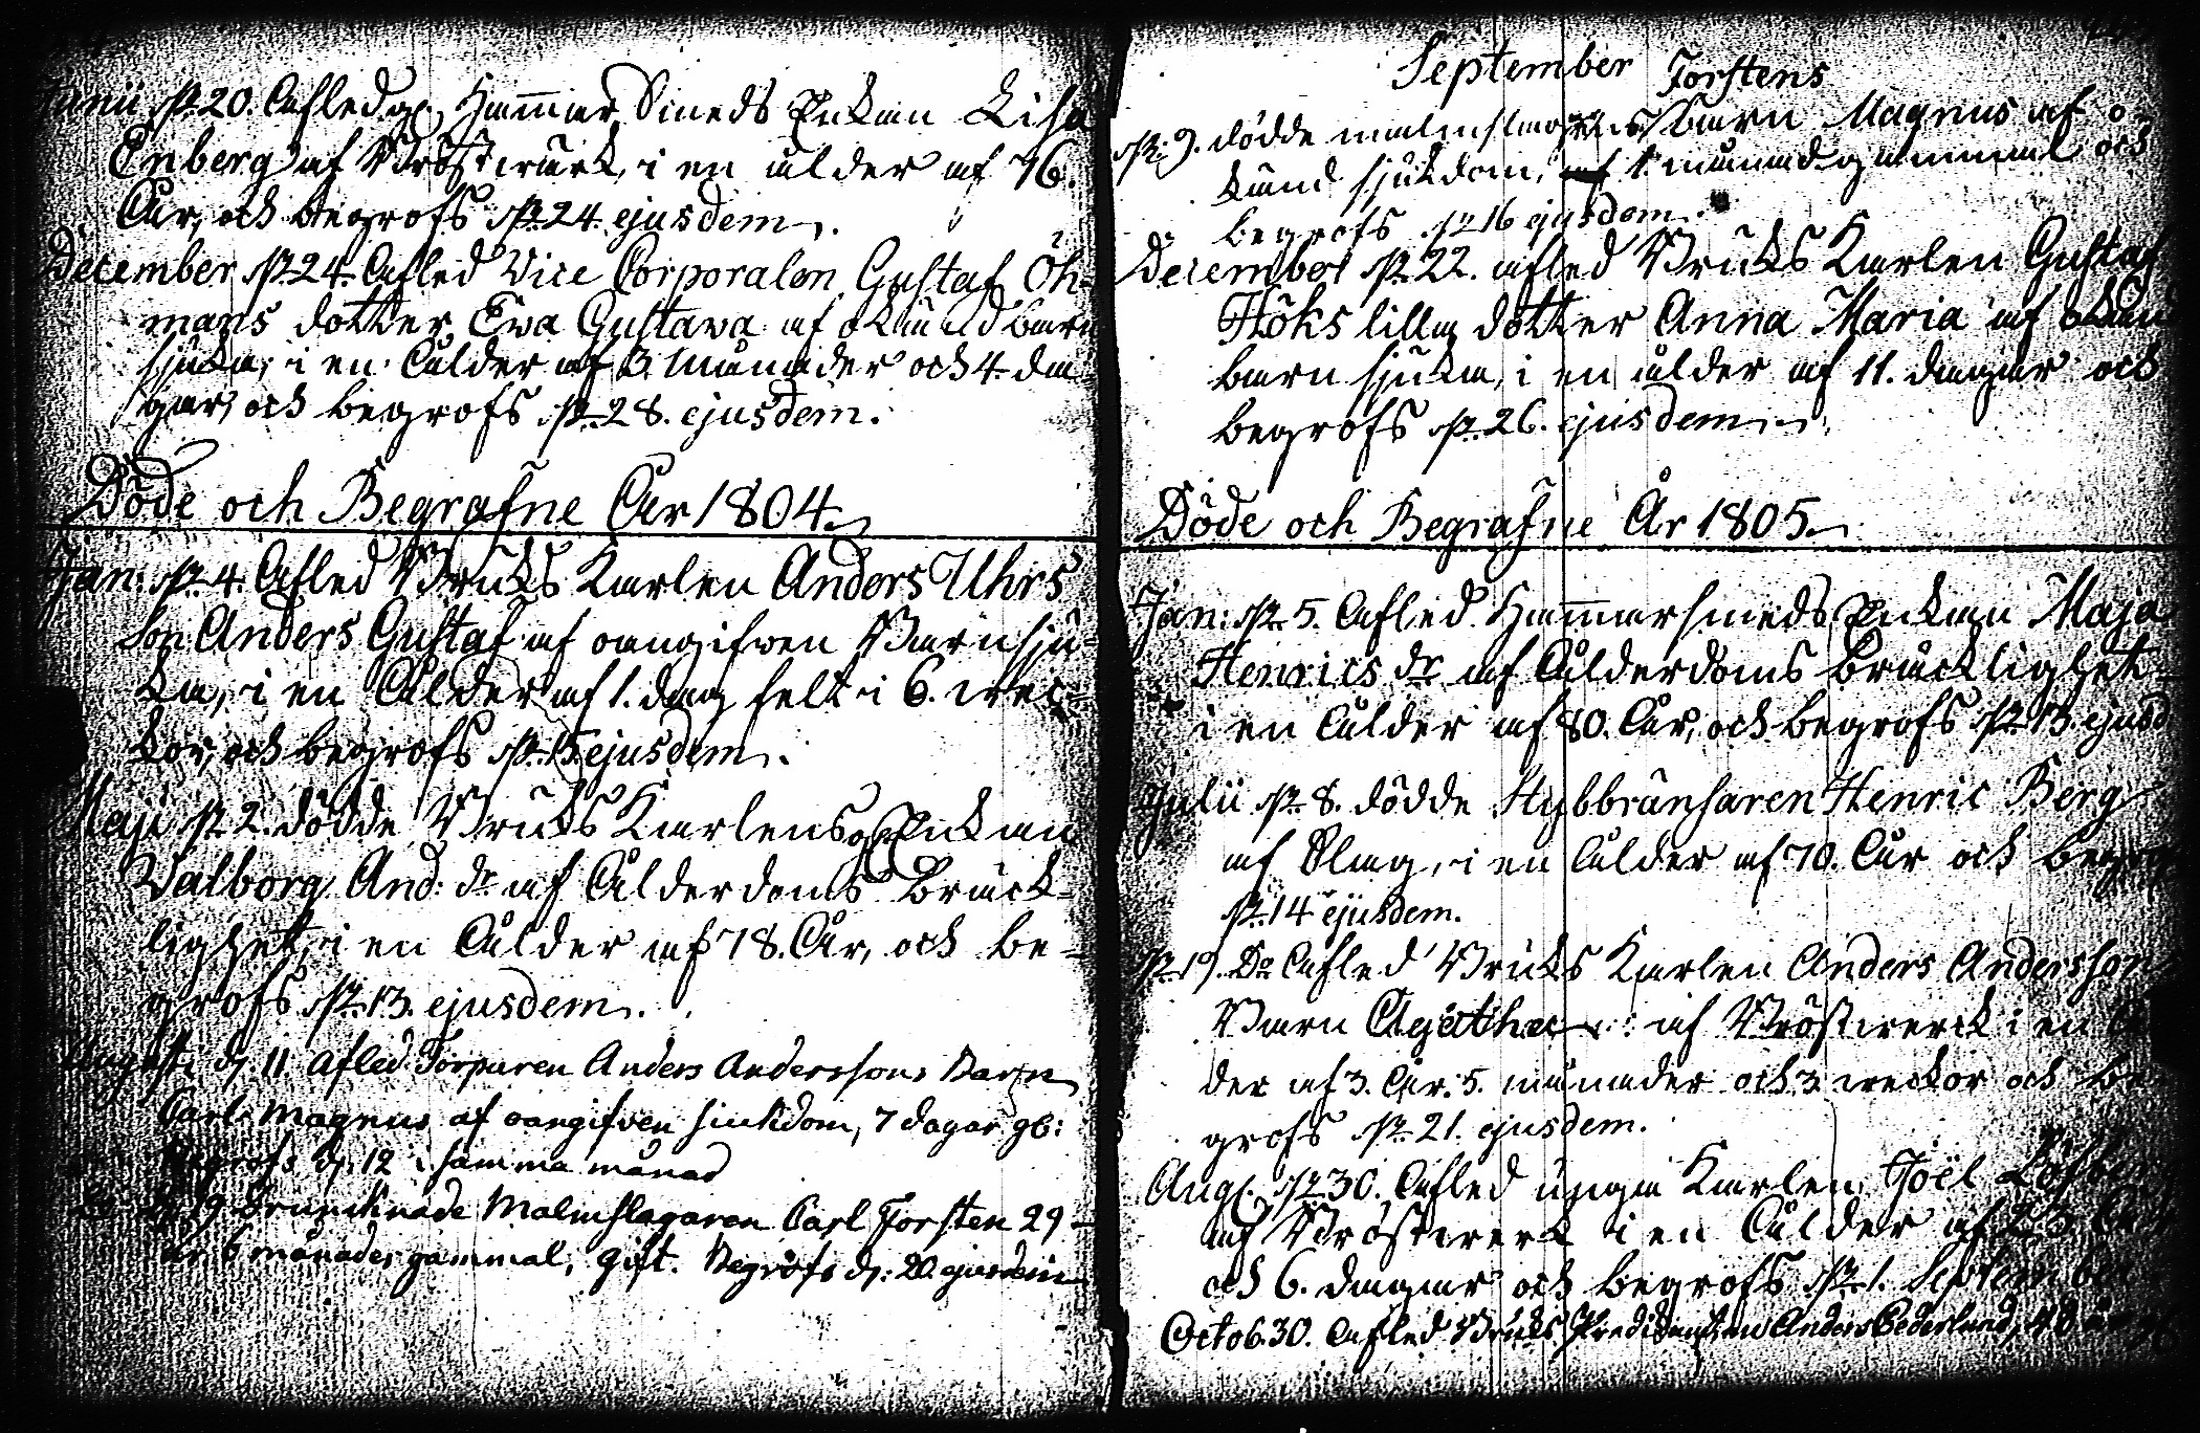 Junii d. 20. Afled gl. Hammar Smeds Enkan Lisa
Enberg af Bröstwärk, i en ålder af 76.
År, och begrofs d. 24. ejusdem.
December d. 24. Afled Vice Corporalen Gustaf Öh-
mans dotter Ewa Gustawa af okänd barn
sjuka, i en Ålder af 3. månader och 4. da-
gar, och begrofs d. 28. ejusdem.
Döde och Begrafne År 1804.
Jan: d. 4. Afled Bruks Karlen Anders Uhrs
Son Anders Gustaf af oangifwen Barnsju-
ka, i en Ålder af 1. dag felt i 6. wec-
kor, och begrofs d. 15. ejusdem.
Maji d. 2. dödde Bruks Karlens Enkan
Valborg And: dr af Ålderdoms Bräck-
lighet, i en Ålder af 78. År, och be-
grofs d. 13. ejusdem.
Augusti d. 11 Afled Torparen Anders Anderssons Barn
Carl Magnus af oangifven siukdom, 7 dagar gl:
Begrofs d. 12 i samma månad
d. 19 Drunknade Malmslagaren Carl Torsten 29
år 6 månader gammal, gift. Begrofs d: 20. ejusdem
September
Torstens
d. 9. dödde malmslagarens barn Magnus af o-
känd sjukdom, af 1. månad gammal och
begrofs d. 16 ejusdem.
December d. 22. afled Bruks Karlen Gustaf
Höks lilla dotter Anna Maria af okän
barn sjuka, i en ålder af 11. dagar och
begrofs d. 26. ejusdem.
Döde och Begrafne År 1805.
Jan: d. 5. Afled Hammarsmeds Enkan Maja
Henrics dr af Ålderdoms bräcklighet
i en Ålder af 80. År, och begrofs d. 13. ejusd
Julii d. 8. dödde Stybbränsaren Henric Berg
af Slag, i en Ålder af 70. År och begro
d. 14 ejusdem.
d. 19. Do Afled Bruks Karlen Anders Andersson
Barn Agatha af Bröstwerck i en
der af 3. År. 5. månader och 3. weckor och be
grofs d. 21. ejusdem.
Aug. d. 30. Afled unga Karlen Joël Löfber
af Bröstwerk i en Ålder af 23. År
och 6. dagar och begrofs d. 1. September
Octob. 30. Afled Bruks Predikanten Anders Cederlund, 40 år